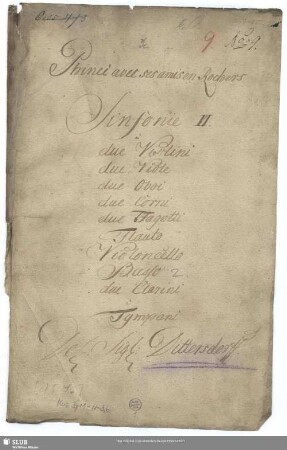 9 No. 9.
Phinei avec ses amis en Rochers
Sinfonie II
due Violini
due Viole
due Oboi
due Corni
due Fagotti
Flauto
Violoncello
Basso
due Clarini
Tympani
Del Sigl Dittersdorff
SLUB